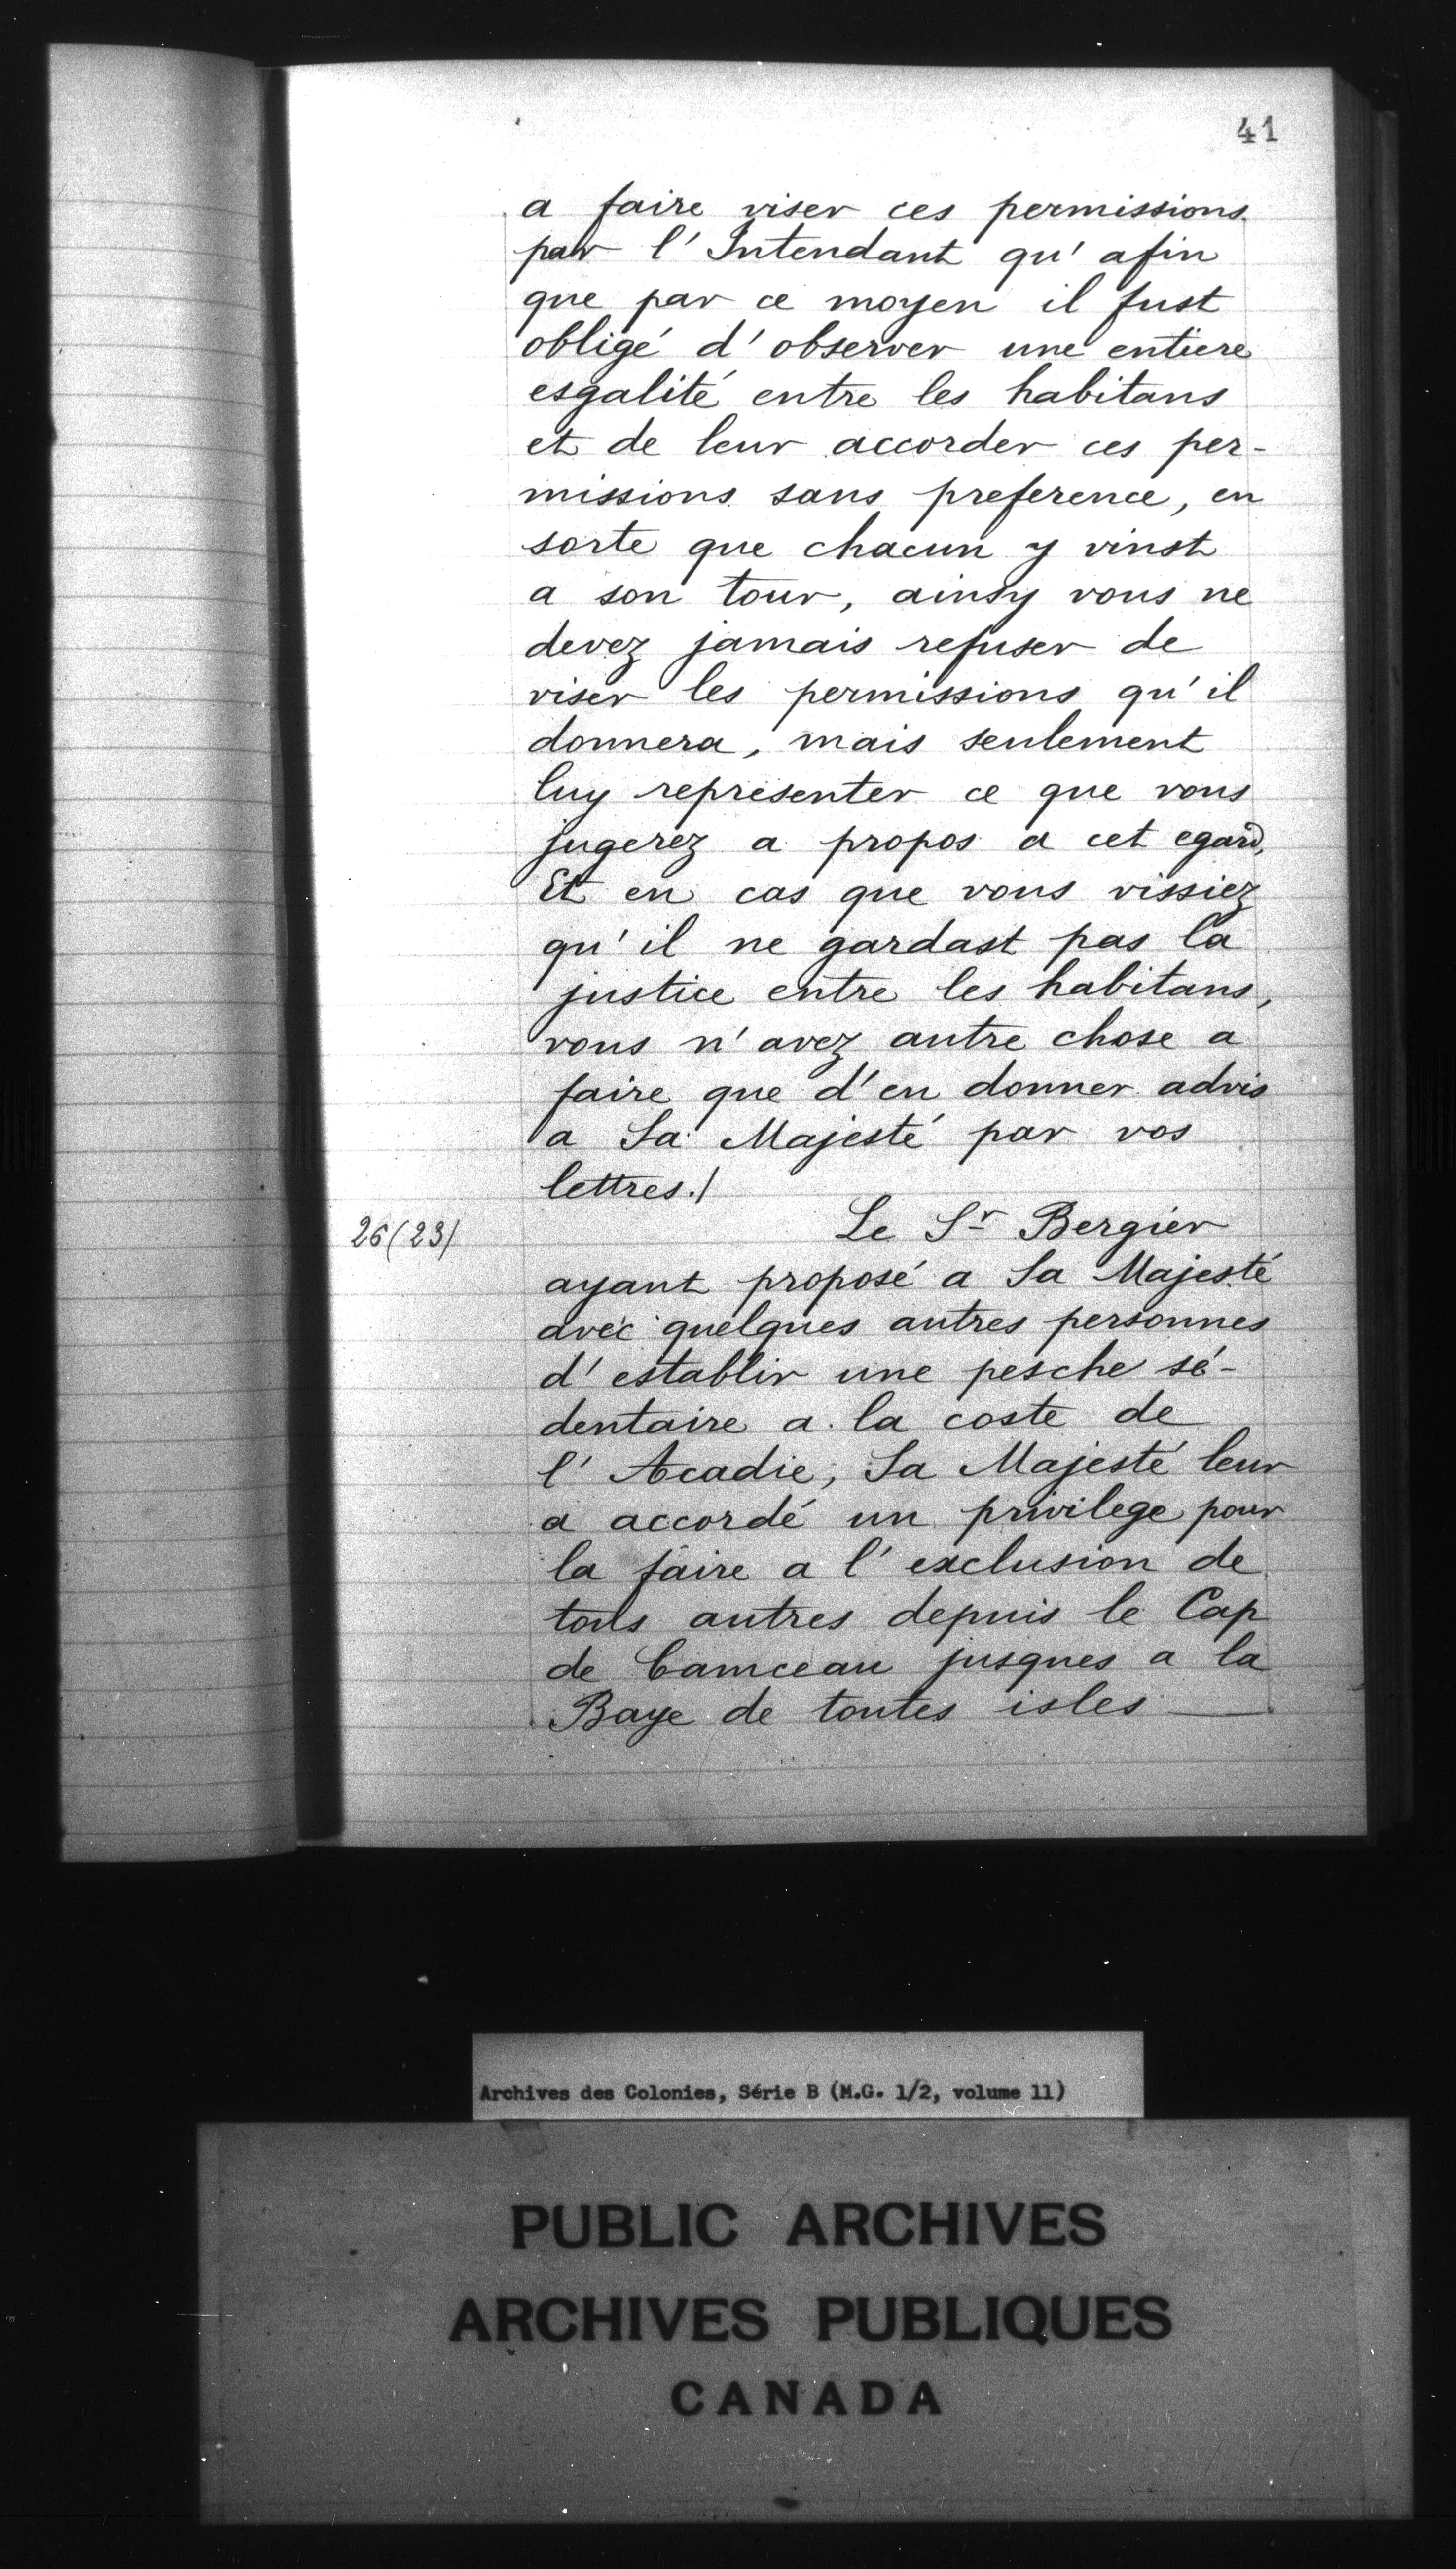 41
a faire viser ces permissions
par l'Intendant qu'afin
que par ce moyen il fust
obligé d'observer une entiere
esgalité entre les habitans
et de leur accorder ces per-
missions sans preference, en
sorte que chacun y vinst
a son tour, ainsy vous ne
devez jamais refuser de
viser les permissions qu'il
donnera, mais seulement
luy representer ce que vous
jugerez a propos a cet egard,
Et en cas que vous vissiez
qu'il ne gardast pas la
justice entre les habitans,
vous n'avez autre chose a
faire que d'en donner advis
a Sa Majesté par vos
lettres./
26(23/
Le Sr Bergier
ayant proposé a Sa Majesté
avec quelques autres personnes
d'establir une pesche sé-
dentaire a la coste de
l'Acadie, Sa Majesté leur
a accordé un privilege pour
la faire a l'exclusion de
tous autres depuis le Cap
de Camceau jusques a la
Baye de toutes isles —
Archives des Colonies, Série B (M.G. 1/2, volume 11)
PUBLIC ARCHIVES
ARCHIVES PUBLIQUES
CANADA